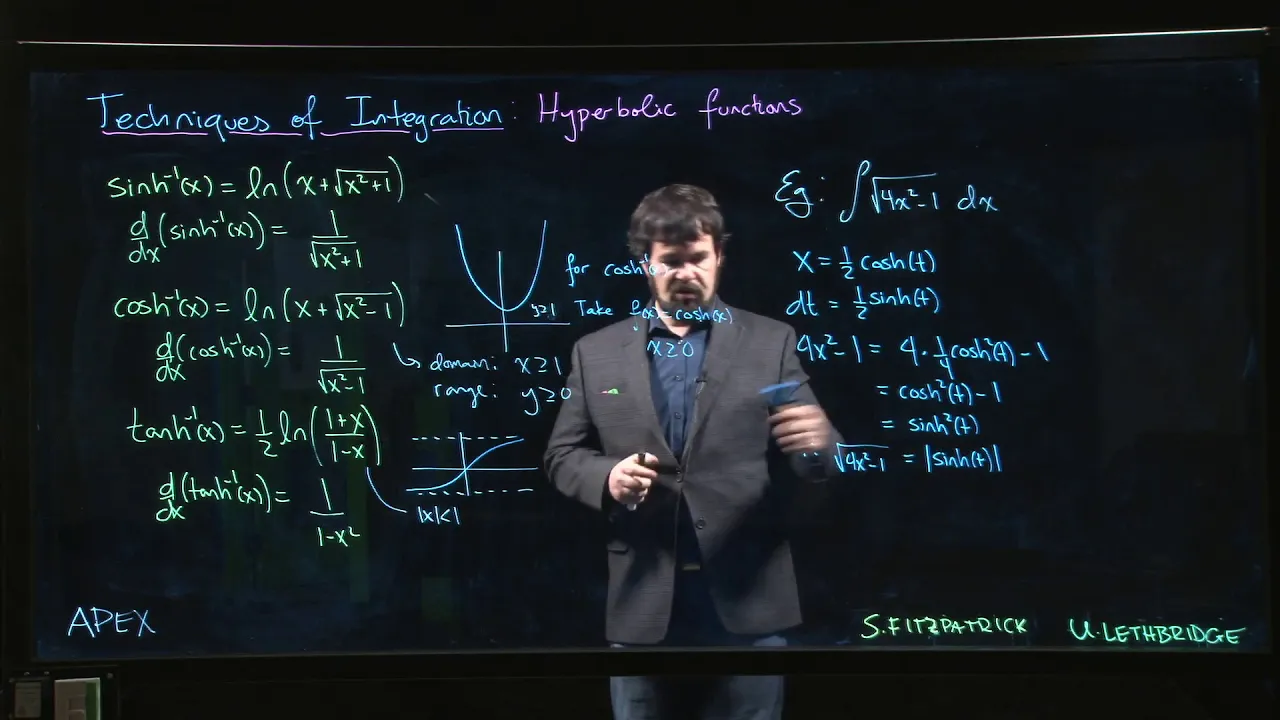 Techniques of Integration: Hyperbolic functions
sinh⁻¹(x) = ln(x+√(x²+1))
d/dx (sinh⁻¹(x)) = 1/√(x²+1)
cosh⁻¹(x) = ln(x+√(x²-1))
d/dx (cosh⁻¹(x)) = 1/√(x²-1)
tanh⁻¹(x) = 1/2 ln((1+x)/(1-x))
d/dx (tanh⁻¹(x)) = 1/(1-x²)
APEX
for cosh⁻¹(x)
y≥1
Take f(x)=cosh(x)
x≥0
domain: x≥1
range: y≥0
|x|<1
Eg: ∫√(4x²-1) dx
x = 1/2 cosh(t)
dt = 1/2 sinh(t)
4x²-1 = 4·1/4 cosh²(t) - 1
= cosh²(t) - 1
= sinh²(t)
√(4x²-1) = |sinh(t)|
S. FITZPATRICK
U. LETHBRIDGE